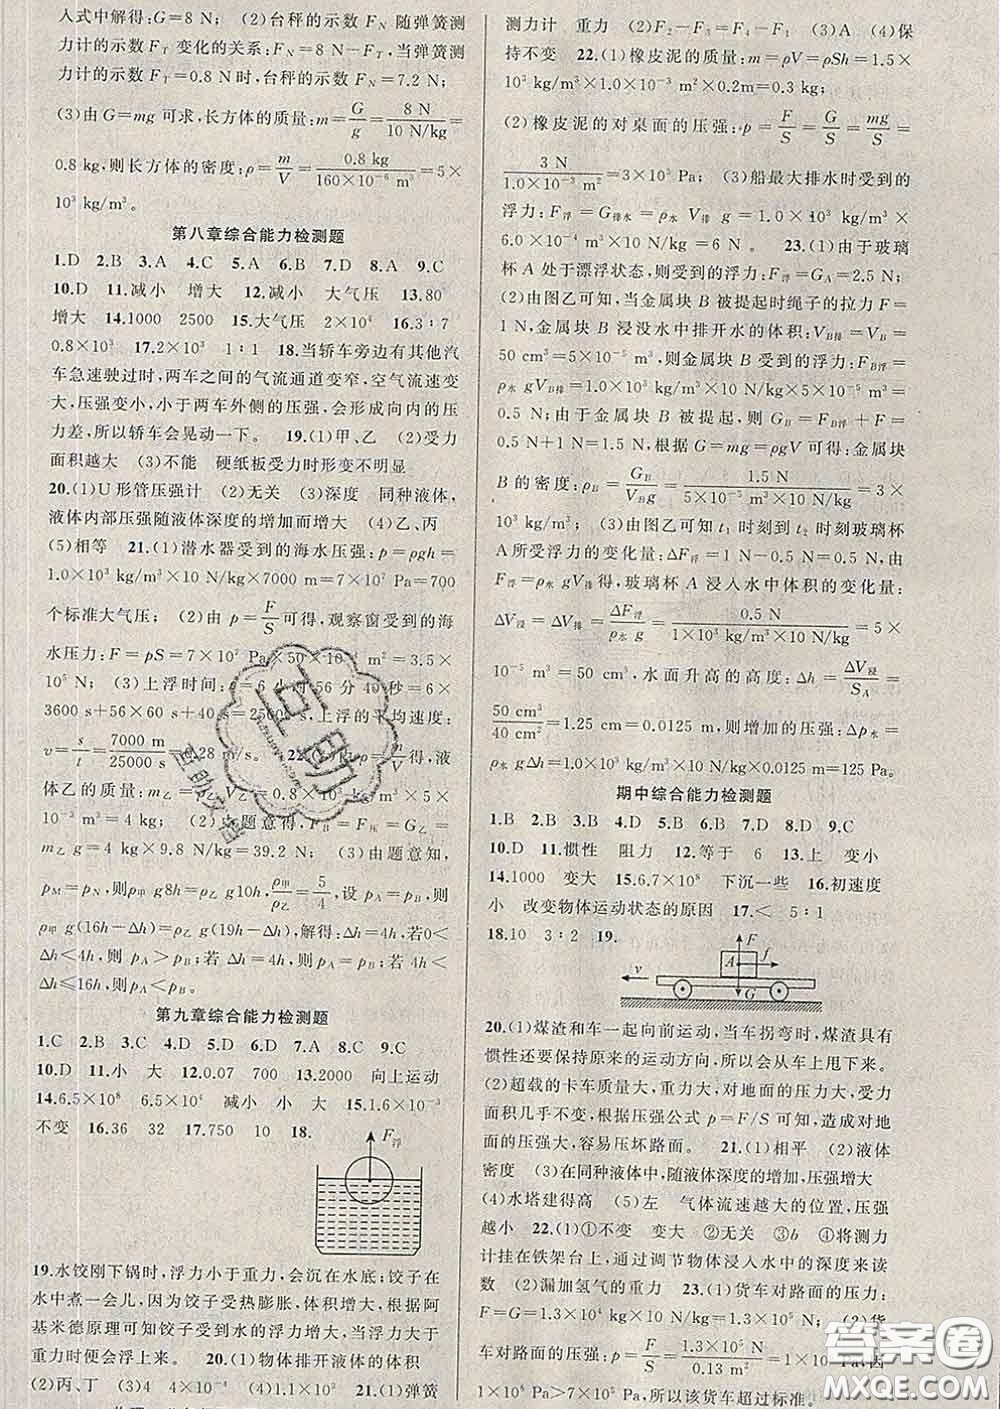 入式中解得:G=8 N; (2)台秤的示数 F_N 随弹簧测
力计的示数 F_T 变化的关系:F_N=8 N-F_T,当弹簧测
力计的示数 F_T=0.8 N时,台秤的示数 F_N=7.2 N;
(3)由 G=mg 可求,长方体的质量:m=G/g=8 N/10 N/kg=
0.8 kg,则长方体的密度:ρ=m/V=0.8 kg/160×10⁻⁶ m³=5×
10³ kg/m³。
第八章综合能力检测题
1.D 2.B 3.A 4.C 5.A 6.B 7.D 8.A 9.C
10.D 11.减小 增大 12.减小 大气压 13.80
增大 14.1000 2500 15.大气压 2×10⁴ 16.3∶7
0.8×10³ 17.2×10³ 1∶1 18.当轿车旁边有其他汽
车急速驶过时,两车之间的气流通道变窄,空气流速变
大,压强变小,小于两车外侧的压强,会形成向内的压
力差,所以轿车会晃动一下。 19.(1)甲、乙 (2)受力
面积越大 (3)不能 硬纸板受力时形变不明显
20.(1)U形管压强计 (2)无关 (3)深度 同种液体,
液体内部压强随液体深度的增加而增大 (4)乙、丙
(5)相等 21.(1)潜水器受到的海水压强:p=ρgh=
1.0×10³ kg/m³×10 N/kg×7000 m=7×10⁷ Pa=700
个标准大气压; (2)由 p=F/S可得,观察窗受到的海
水压力:F=pS=7×10⁷ Pa×50×10 m²=3.5×
10⁵ N; (3)上浮时间:56 分 40 秒=6×
3600 s+56×60 s+40 s=25000 s,上浮的平均速度:
v=s/t=7000 m/25000 s=0.28 m/s。 22.(1)由ρ=m/V得,液
体乙的质量:m乙=ρ乙V乙=0.8×10³ kg/m³×5
×10⁻³ m³=4 kg; (2)由题意得:F_B=F压=G乙=
m乙g=4 kg×9.8 N/kg=39.2 N; (3)由题意知,
p_M=p_N,则ρ甲g8h=ρ乙g10h,ρ甲/ρ乙=5/4,设 p_A=p_B,则
ρ甲g(16h-Δh)=ρ乙g(19h-Δh),解得:Δh=4h,若0<
Δh<4h,则p_A>p_B;若Δh=4h,则p_A=p_B;若4h<
Δh≤16h,则p_A<p_B。
第九章综合能力检测题
1.C 2.B 3.C 4.D 5.D 6.D 7.A 8.C 9.C
10.D 11.小 大 12.0.07 700 13.2000 向上运动
14.6.5×10⁸ 6.5×10⁴ 减小 小 大 15.1.6×10⁻³
不变 16.36 32 17.750 10 18.
F浮
19.水饺刚下锅时,浮力小于重力,会沉在水底;饺子在
水中煮一会儿,因为饺子受热膨胀,体积增大,根据阿
基米德原理可知饺子受到水的浮力增大,当浮力大于
重力时便会浮上来。 20.(1)物体排开液体的体积
(2)丙、丁 (3)4 4×10⁻⁴ (4)变大 21.(1)弹簧
测力计 重力 (2)F₂-F₃=F₄-F₁ (3)A (4)保
持不变 22.(1)橡皮泥的质量:m=ρV=ρSh=1.5×
10³ kg/m³×1.0×10⁻³ m²×0.2m=0.3 kg;
(2)橡皮泥的对桌面的压强:p=F/S=G/S=mg/S=
3 N/1.0×10⁻³ m²=3×10³ Pa; (3)船最大排水时受到的
浮力:F浮=G排水=ρ水 V排 g=1.0×10³ kg/m³×
6.0×10⁻⁴ m³×10 N/kg=6 N。 23.(1)由于玻璃
杯A处于漂浮状态,则受到的浮力:F浮=G_A=2.5 N;
(2)由图乙可知,当金属块B被提起时绳子的拉力F=
1 N,金属块B浸没水中排开水的体积:V_B排=V_B=
50 cm³=5×10⁻⁵ m³,则金属块B受到的浮力:F_B浮=
ρ水 gV_B排=1.0×10³ kg/m³×10 N/kg×5×10⁻⁵ m³=
0.5 N;由于金属块B被提起,则 G_B=F_B浮+F=
0.5 N+1 N=1.5 N,根据G=mg=ρgV可得:金属块
B的密度:ρ_B=G_B/V_Bg=1.5 N/5×10⁻⁵ m³×10 N/kg=3×
10³ kg/m³; (3)由图乙可知t₁时刻到t₂时刻玻璃杯
A所受浮力的变化量:ΔF浮=1 N-0.5 N=0.5 N,由
F浮=ρ水 gV排得,玻璃杯A浸入水中体积的变化量:
ΔV浸=ΔV排=ΔF浮/ρ水 g=0.5 N/1×10³ kg/m³×10 N/kg=5×
10⁻⁵ m³=50 cm³,水面升高的高度:Δh=ΔV浸/S_A=
50 cm³/40 cm²=1.25 cm=0.0125 m,则增加的压强:Δp水=
ρ水 gΔh=1.0×10³ kg/m³×10 N/kg×0.0125 m=125 Pa。
期中综合能力检测题
1.B 2.B 3.B 4.D 5.B 6.B 7.D 8.D 9.C
10.D 11.惯性 阻力 12.等于 6 13.上 变小
14.1000 变大 15.6.7×10⁸ 下沉一些 16.初速度
小 改变物体运动状态的原因 17.< 5∶1
18.10 3∶2 19.
F A f v G
20.(1)煤渣和车一起向前运动,当车拐弯时,煤渣具有
惯性还要保持原来的运动方向,所以会从车上甩下来。
(2)超载的卡车质量大,重力大,对地面的压力大,受力
面积几乎不变,根据压强公式 p=F/S 可知,造成对地
面的压强大,容易压坏路面。 21.(1)相平 (2)液体
密度 (3)在同种液体中,随液体深度的增加,压强增大
(4)水塔建得高 (5)左 气体流速越大的位置,压强
越小 22.(1)①不变 变大 ②无关 ③b ④将测力
计挂在铁架台上,通过调节物体浸入水中的深度来读
数 (2)漏加氢气的重力 23.(1)货车对路面的压力:
F=G=1.3×10⁴ kg×10 N/kg=1.3×10⁵ N; (2)货
车对路面的压强:p=F/S=1.3×10⁵ N/0.13 m²=1×10⁶ Pa,因
1×10⁶ Pa>7×10⁵ Pa,所以该货车超过标准。
答案圈
MXQE.COM